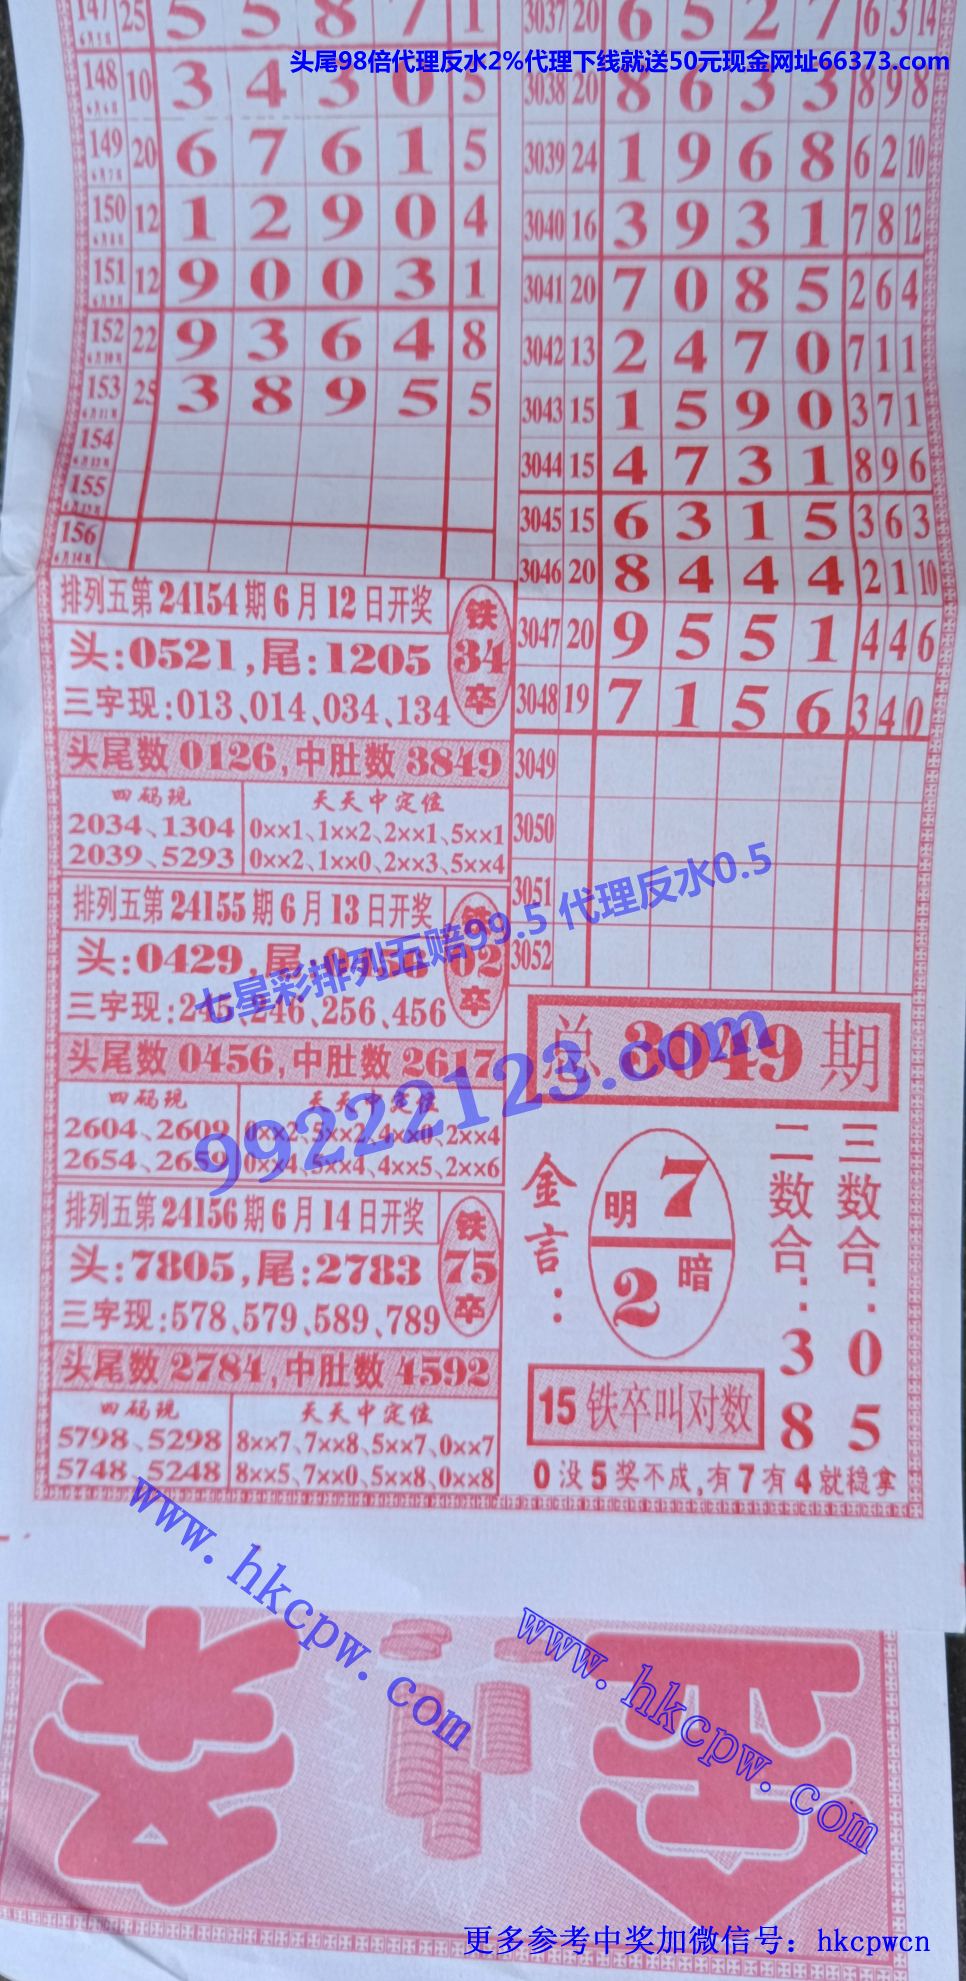 头尾98倍代理反水2%代理下线就送50元现金网址66373.com
147 25 5 5 8 7 1
148 10 3 4 3 0 5
149 20 6 7 6 1 5
150 12 1 2 9 0 4
151 12 9 0 0 3 1
152 22 9 3 6 4 8
153 25 3 8 9 5 5
154
155
156
3037 20 6 5 2 7 6 3 14
3038 20 8 6 3 3 8 9 8
3039 24 1 9 6 8 6 2 10
3040 16 3 9 3 1 7 8 12
3041 20 7 0 8 5 2 6 4
3042 13 2 4 7 0 7 1 1
3043 15 1 5 9 0 3 7 1
3044 15 4 7 3 1 8 9 6
3045 15 6 3 1 5 3 6 3
3046 20 8 4 4 4 2 1 10
3047 20 9 5 5 1 4 4 6
3048 19 7 1 5 6 3 4 0
3049
3050
3051
3052
排列五第24154期6月12日开奖
头:0521,尾:1205
三字现:013、014、034、134
铁
34
卒
头尾数0126,中肚数3849
四码现
2034、1304
2039、5293
天天中定位
0××1、1××2、2××1、5××1
0××2、1××0、2××3、5××4
排列五第24155期6月13日开奖
头:0429,尾:
三字现:245、246、256、456
铁
02
卒
头尾数0456,中肚数2617
四码现
2604、2609
2654、2659
天天中定位
0××2、5××2、4××0、2××4
0××4、5××4、4××5、2××6
排列五第24156期6月14日开奖
头:7805,尾:2783
三字现:578、579、589、789
铁
75
卒
头尾数2784,中肚数4592
四码现
5798、5298
5748、5248
天天中定位
8××7、7××8、5××7、0××7
8××5、7××0、5××8、0××8
总3049期
金言:
明 7
2 暗
二数合:38
三数合:05
15铁卒叫对数
0没5奖不成,有7有4就稳拿
七星彩排列五赔99.5 代理反水0.5
99222123.com
www.hkcpw.com
www.hkcpw.com
更多参考中奖加微信号：hkcpwcn